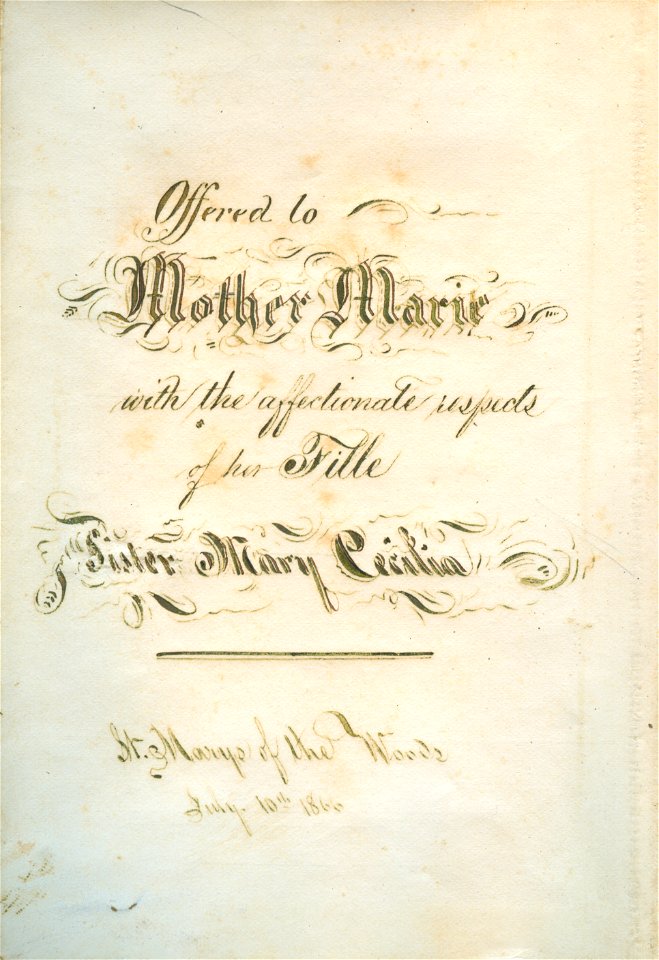 Offered to
Mother Marie
with the affectionate respects
of her Fille
Sister Mary Cecilia
St. Marys of the Woods
July. 10th 1866